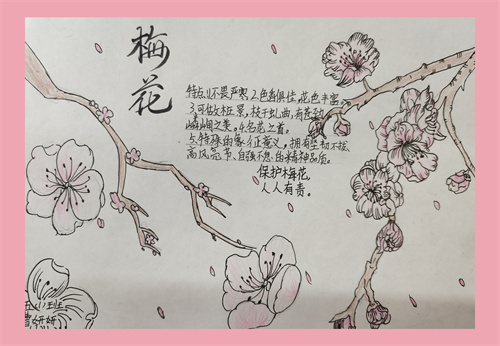 梅花
特点:1.不畏严寒,2.色香俱佳,花色丰富。
3.可做桩景,枝干虬曲,有苍劲
嶙峋之美。4.名花之首。
5.特殊的象征意义,拥有坚韧不拔、
高风亮节、自强不息的精神品质。
保护梅花
人人有责。
五(1)班
妍妍